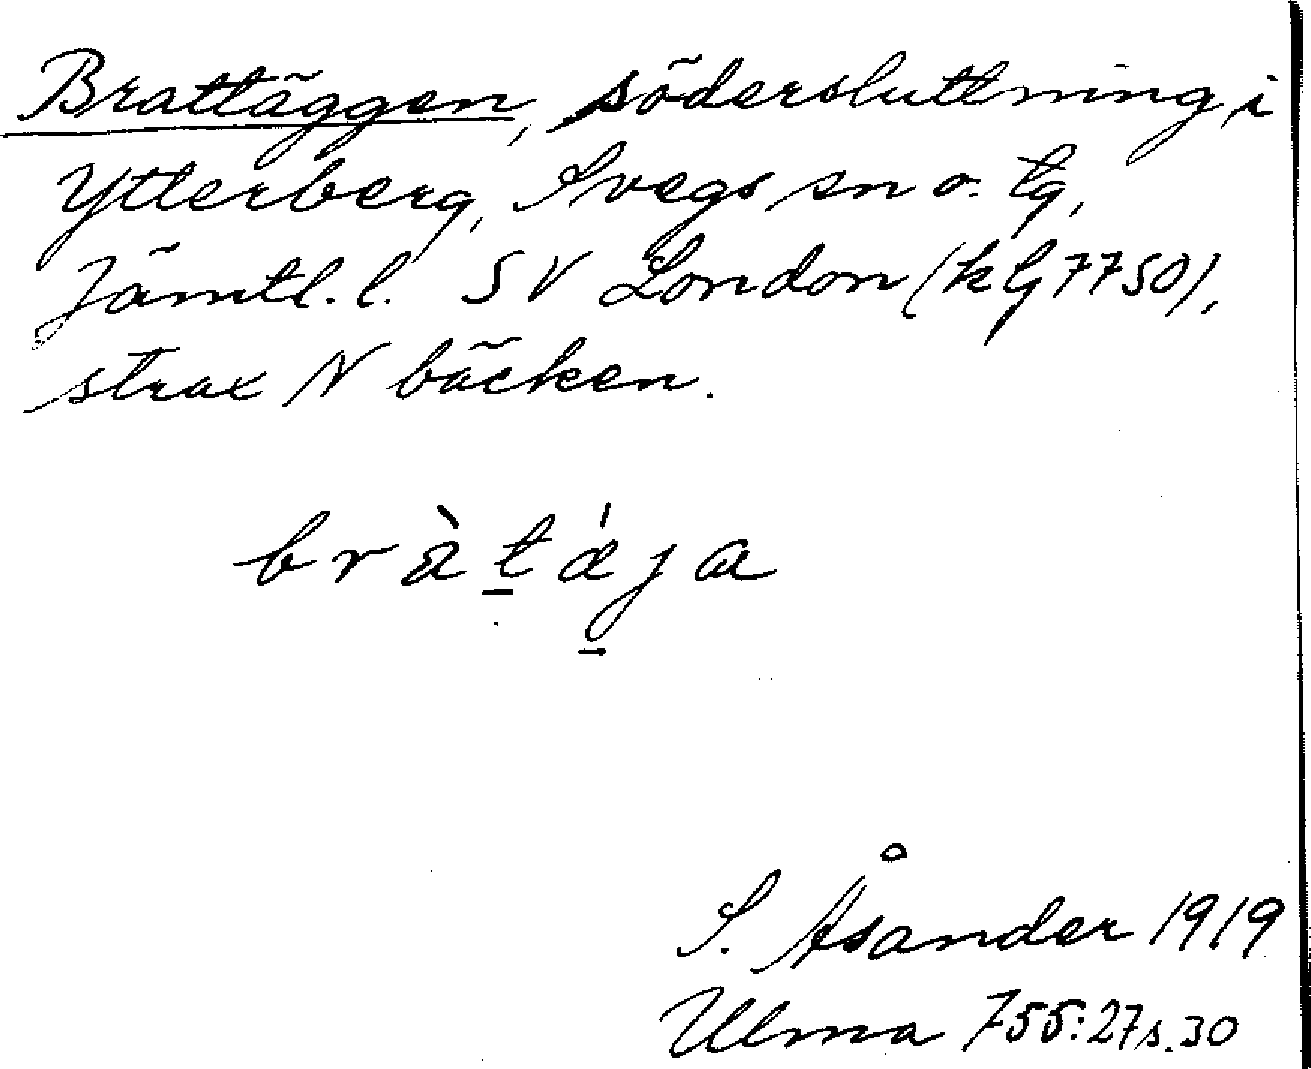 Brattäggen, södersluttning i
Ytterberg, Svegs sn o. tg,
Jämtl. l. SV London (kG7750),
strax N bäcken.
S. Åsander 1919
Ulma 755:27 s. 30